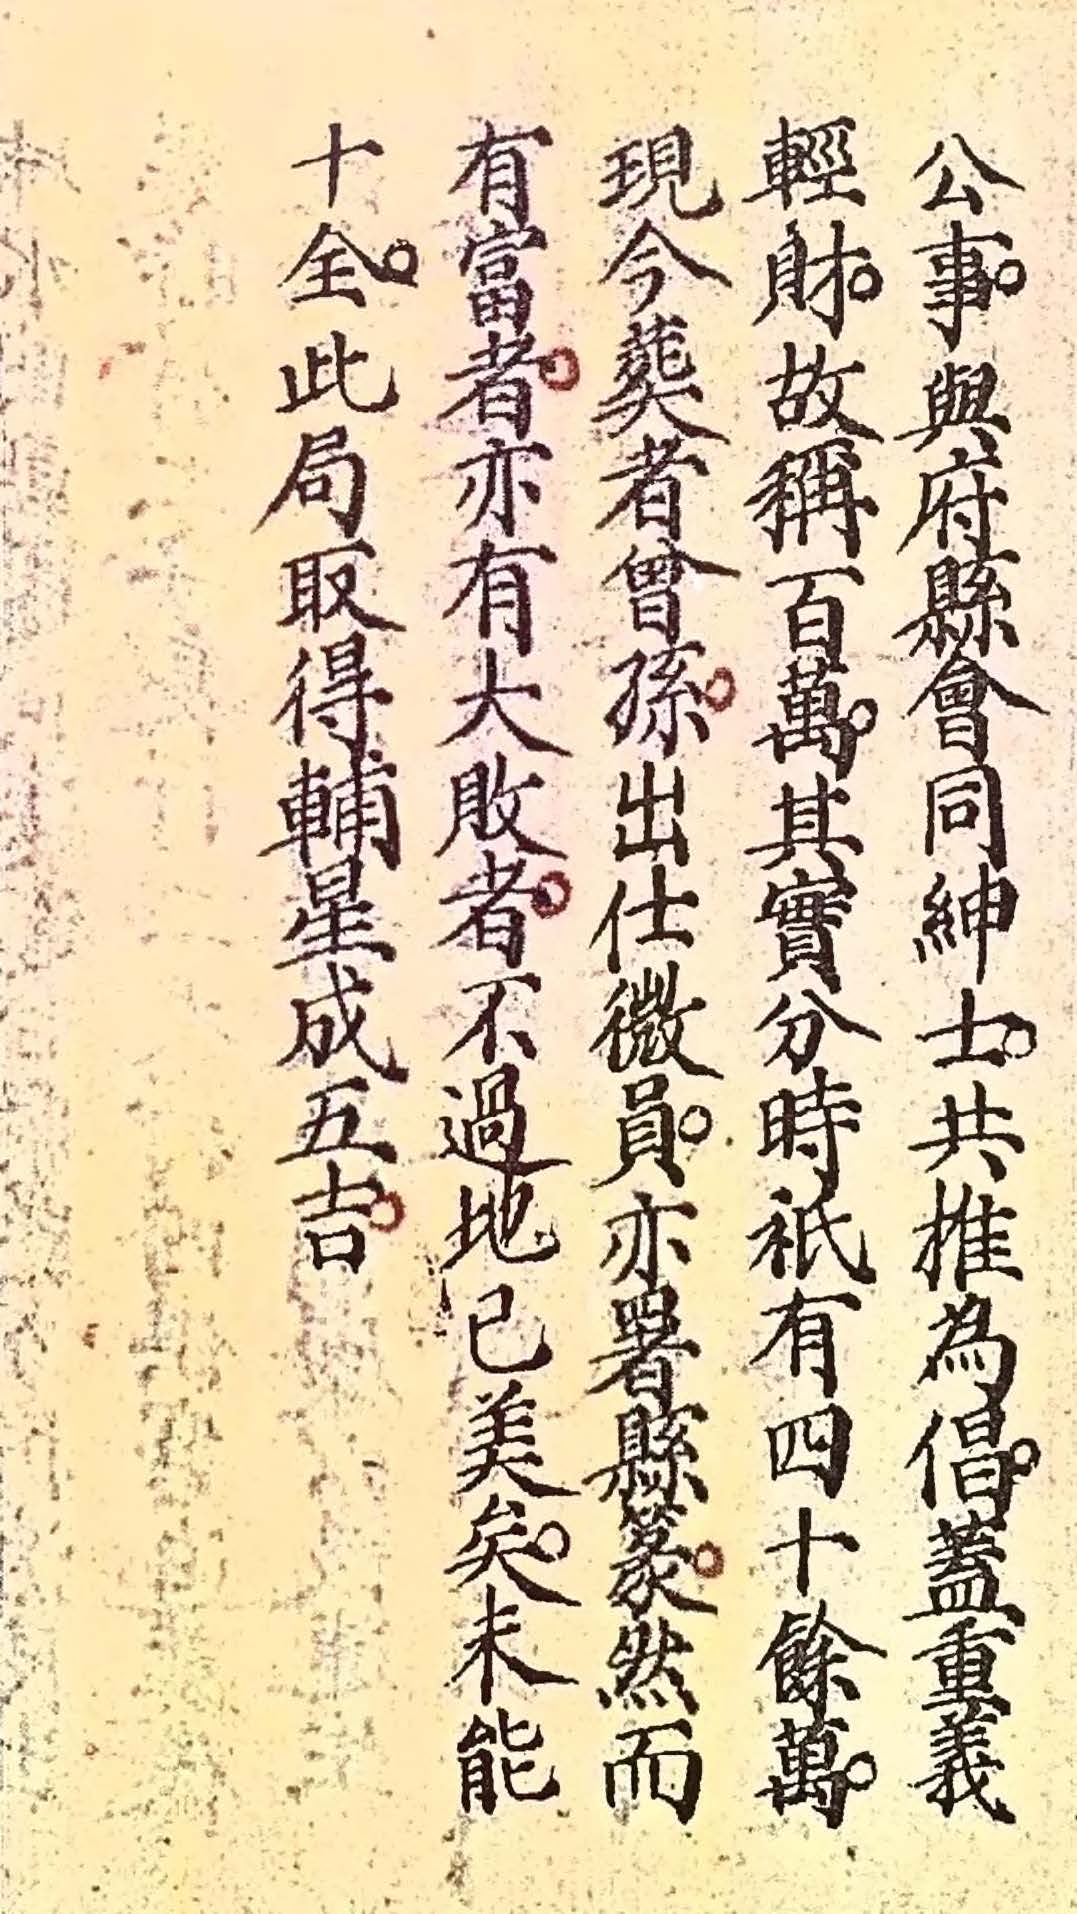 公事。與府縣會同紳士。共推為倡。蓋重義
輕財。故稱百萬。其實分時祇有四十餘萬。
現今葬者曾孫。出仕微員。亦署縣篆。然而
有富者。亦有大敗者。不過地已美矣。未能
十全。此局取得輔星成五吉。